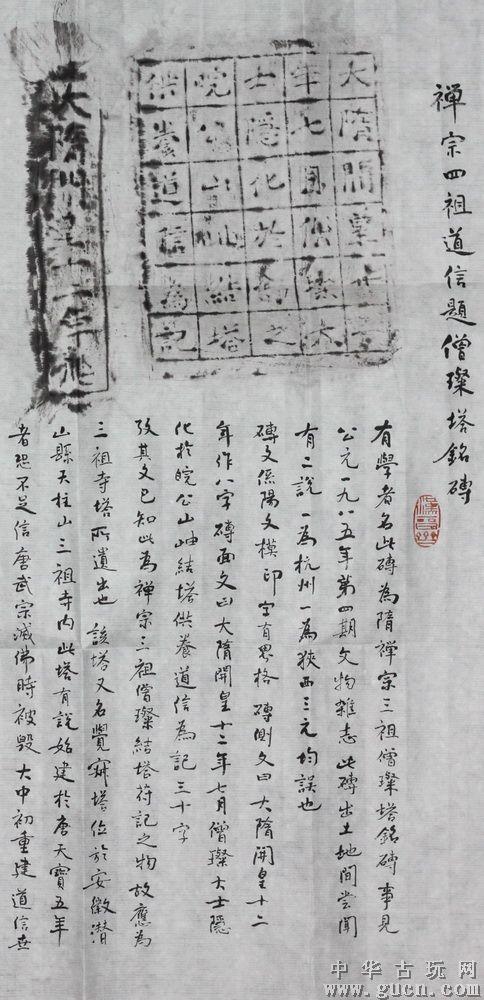 禪宗四祖道信題僧璨塔銘磚
大隋開皇十二
年七月僧璨大
士隱化於舒之
皖公山岫結塔
供養道信為記
大隋開皇十二年作
有學者名此磚為隋禪宗三祖僧璨塔銘磚事見
公元一九八五年第四期文物雜志此磚出土地間嘗聞
有二說一為杭州一為狹西三元均誤也
磚文係陽文模印空有界格磚側文曰大隋開皇十二
年作八字磚面文曰大隋開皇十二年七月僧璨大士隱
化於皖公山岫結塔供養道信為記三十字
攷其文已知此為禪宗三祖僧璨結塔苻記之物故應為
三祖寺塔所遺出也該塔又名覺寂塔位於安徽潛
山縣天柱山三祖寺內此塔有說始建於唐天寶五年
者恐不足信唐武宗滅佛時被毀大中初重建道信在
中华古玩网
www.gucn.com